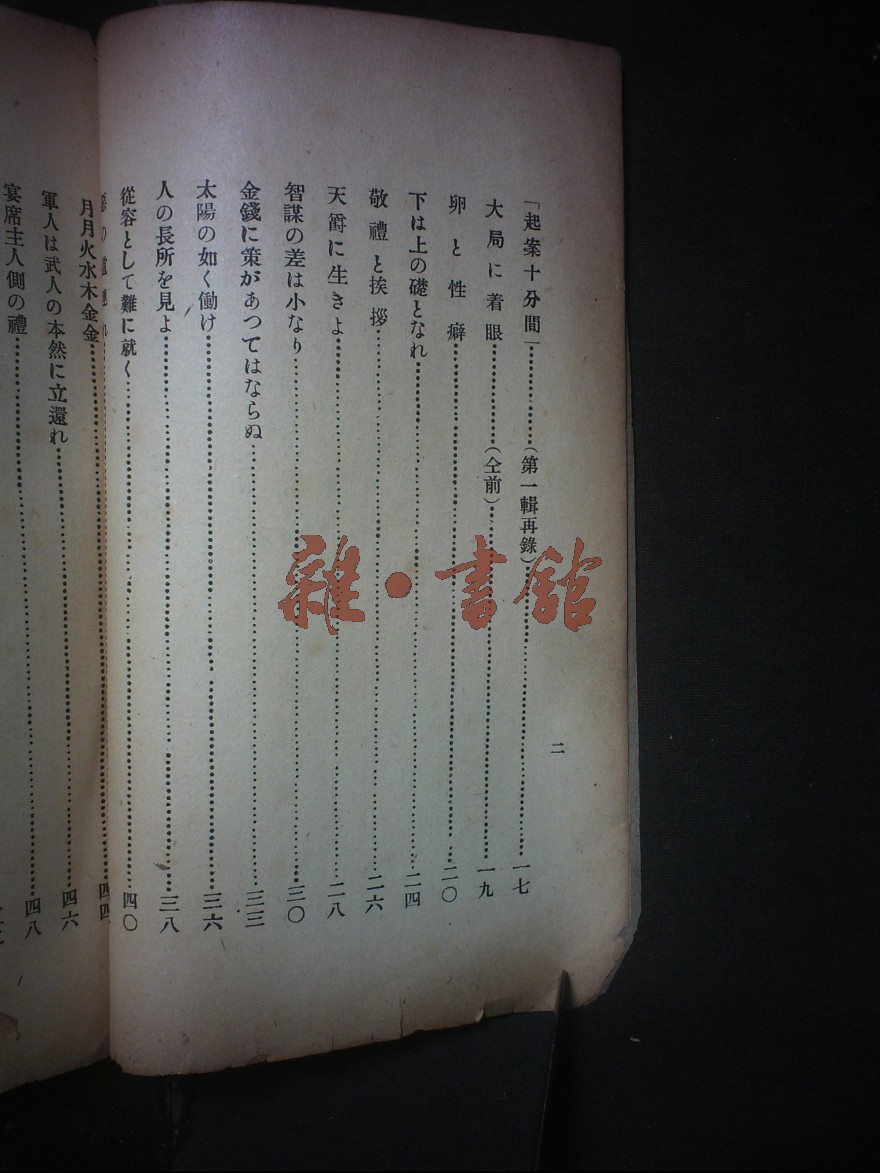 二
「起案十分間」……(第一輯再錄)……一七
大局に着眼……(仝前)……一九
卵と性癖……二〇
下は上の礎となれ……二四
敬禮と挨拶……二六
天爵に生きよ……二八
智謀の差は小なり……三〇
金錢に策があつてはならぬ……三三
太陽の如く働け……三六
人の長所を見よ……三八
從容として難に就く……四〇
月月火水木金金……四四
軍人は武人の本然に立還れ……四六
宴席主人側の禮……四八
雜・書館